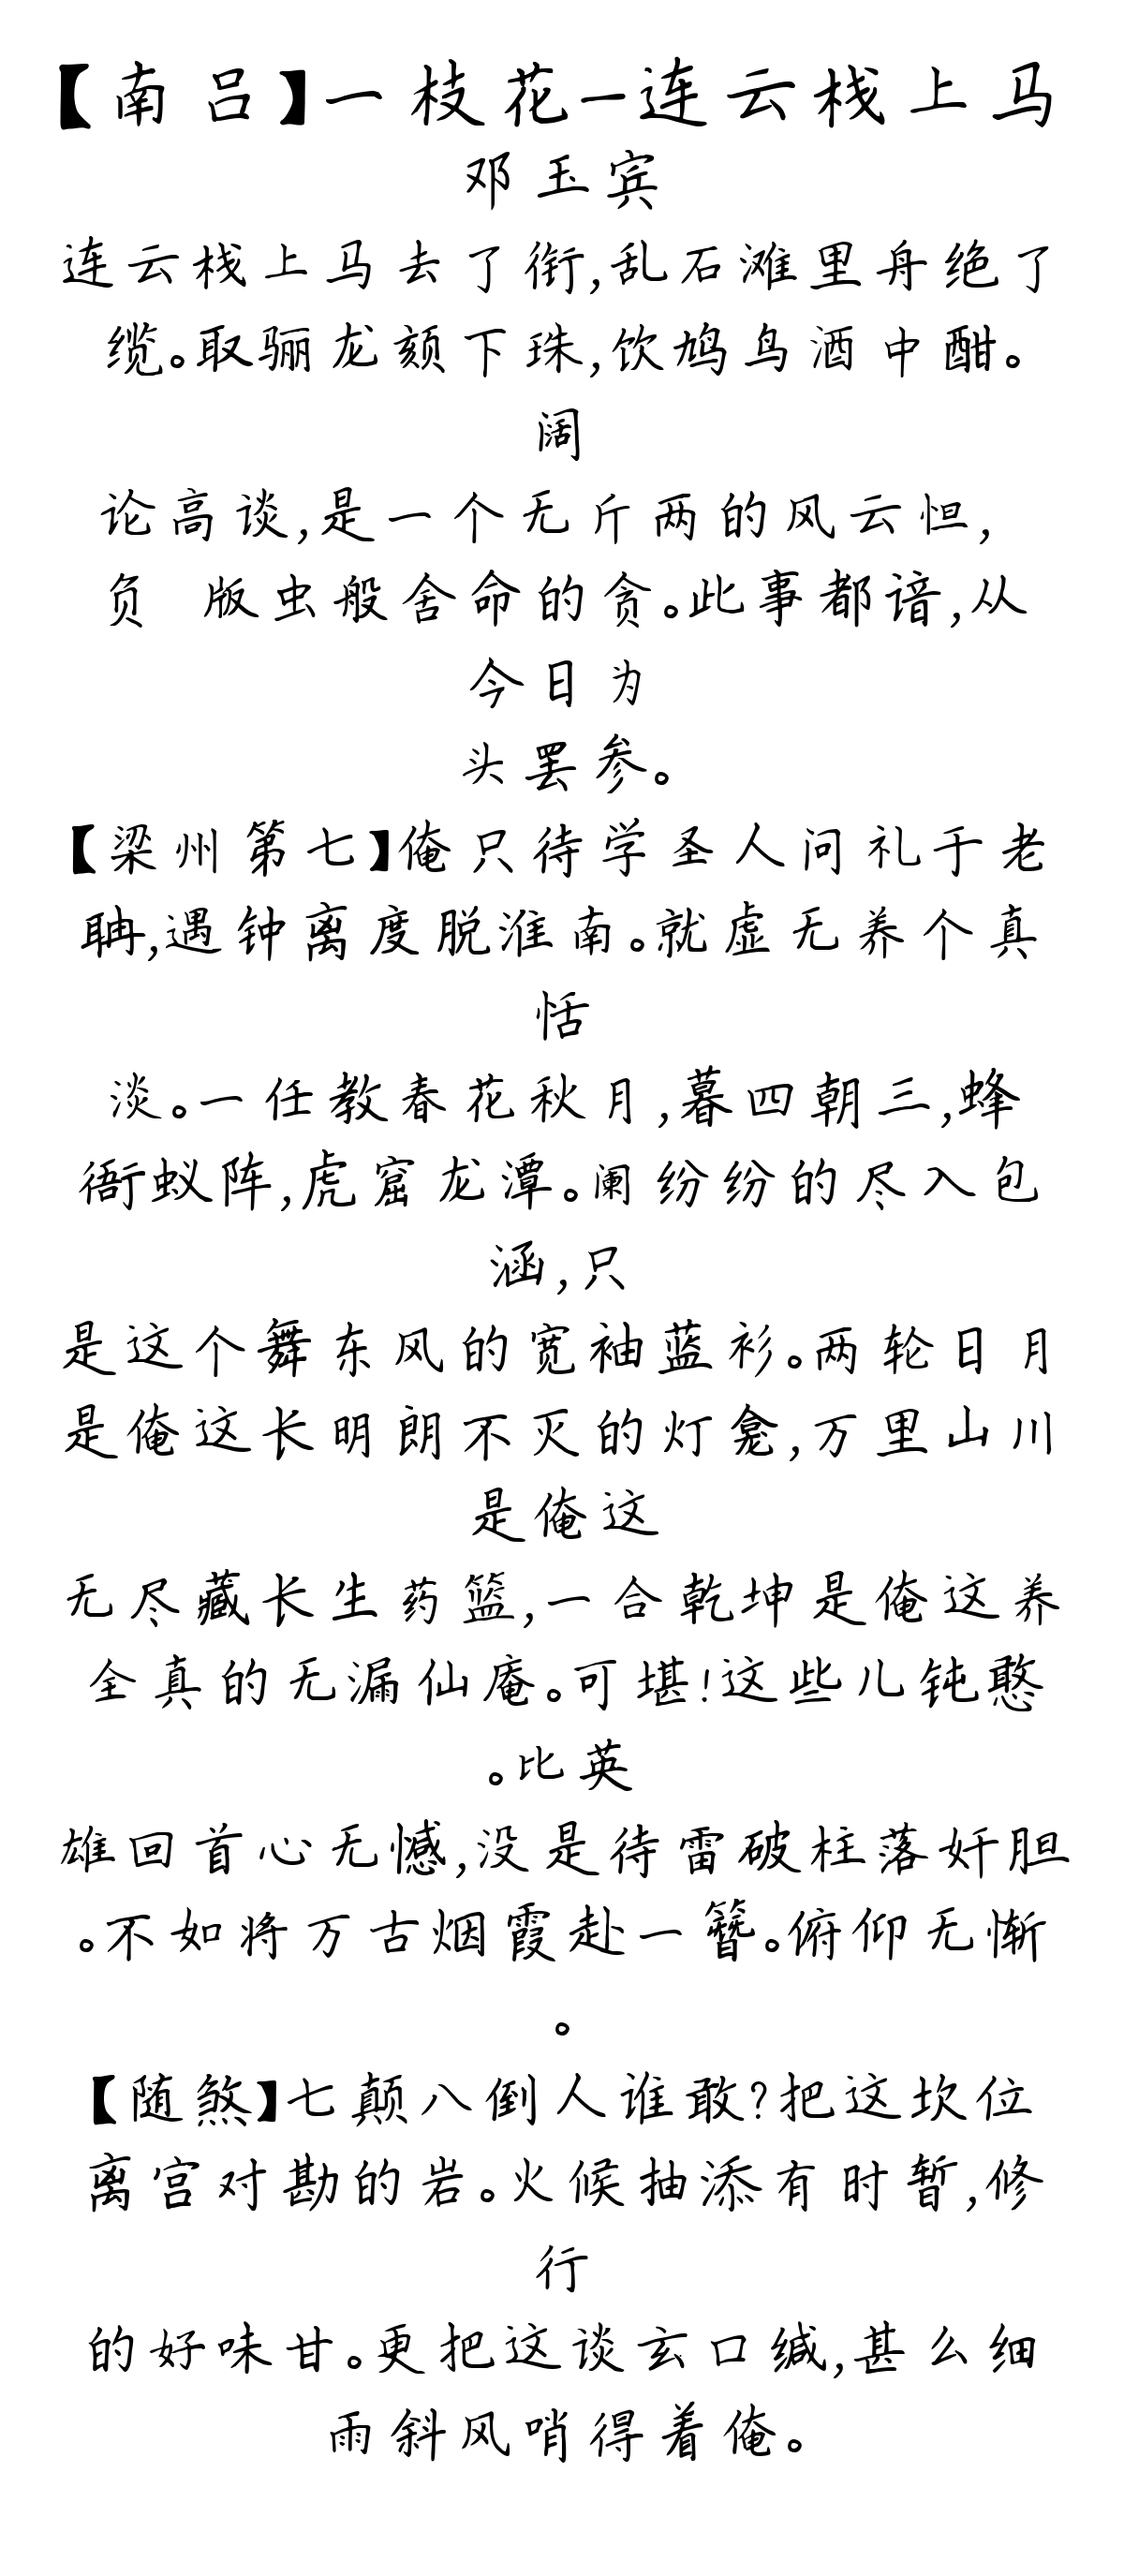 【南吕】一枝花-连云栈上马
邓玉宾
连云栈上马去了衔,乱石滩里舟绝了
缆。取骊龙颏下珠,饮鸠鸟酒中酣。
阔
论高谈,是一个无斤两的风云怛,
负 版虫般舍命的贪。此事都谙,从
今日为
头罢参。
【梁州第七】俺只待学圣人问礼于老
聃,遇钟离度脱淮南。就虚无养个真
恬
淡。一任教春花秋月,暮四朝三,蜂
衙蚁阵,虎窟龙潭。阑纷纷的尽入包
涵,只
是这个舞东风的宽袖蓝衫。两轮日月
是俺这长明朗不灭的灯龛,万里山川
是俺这
无尽藏长生药篮,一合乾坤是俺这养
全真的无漏仙庵。可堪!这些儿钝憨
。比英
雄回首心无憾,没是待雷破柱落奸胆
。不如将万古烟霞赴一簪。俯仰无惭
。
【随煞】七颠八倒人谁敢?把这坎位
离宫对勘的岩。火候抽添有时暂,修
行
的好味甘。更把这谈玄口缄,甚么细
雨斜风哨得着俺。